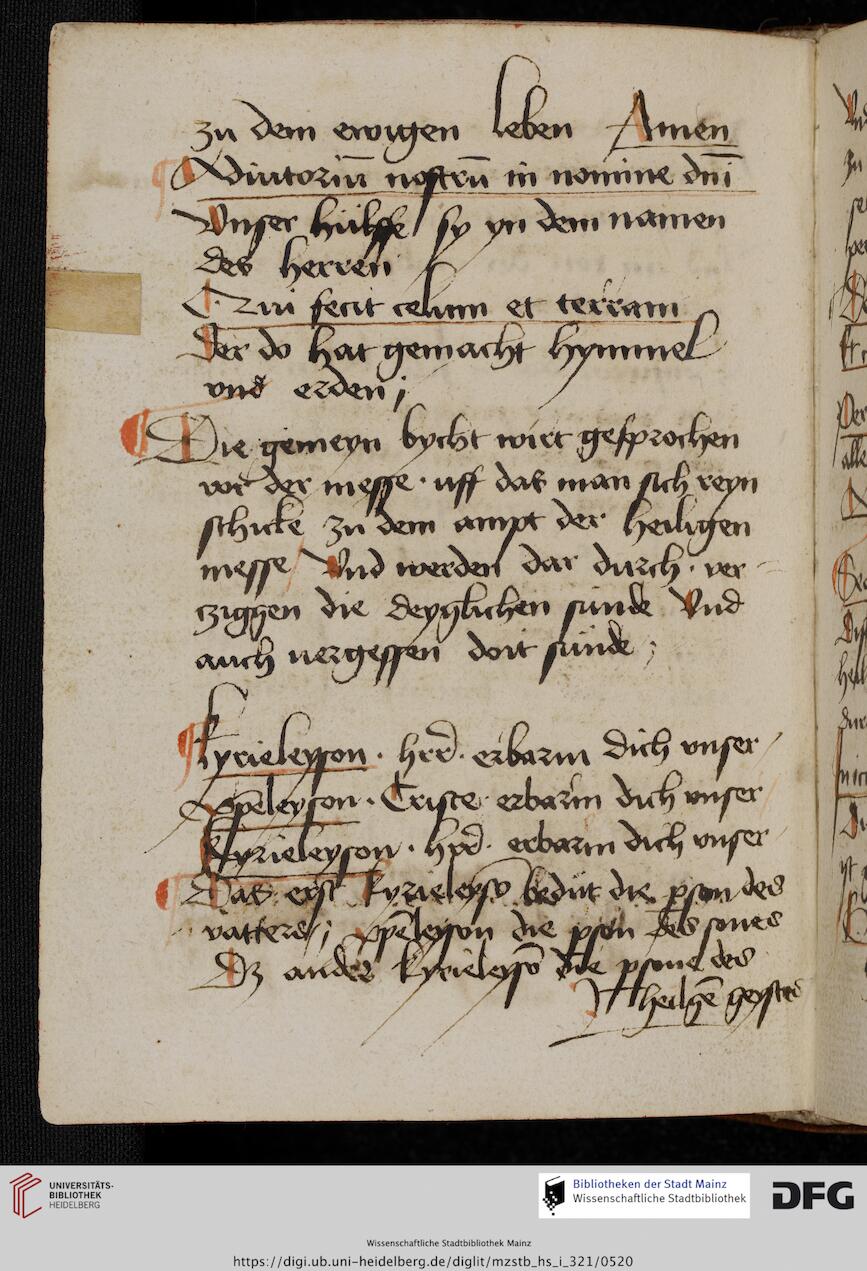 zu dem ewigen leben Amen
Adiutoriū nostrū in nomine dn̄i
Vnser hülffe sy yn dem namen
des herren
Qui fecit celum et terram
Der do hat gemacht hymmel
vnd erden;
Die gemeyn bycht wirt gesprochen
vor der messe · uff das man sich reyn
schicke zu dem ampt der heiligen
messe / Vnd werden dar durch · ver-
cziggen die deyglichen sunde Vnd
auch uergessen doit sunde;
Kyrieleyson · hrr̄ · erbarm dich vnser
xp̄eleyson · Criste · erbarm dich vnser
Kyrieleyson · · erbarm dich vnser
Das erst kyrieleysō bedüt die ꝑson des
vatters; xp̄eleyson die ꝑson des sones
Dz ander kyrieleysō die ꝑsone des
heilgē geystes
UNIVERSITÄTS-
BIBLIOTHEK
HEIDELBERG
Bibliotheken der Stadt Mainz
Wissenschaftliche Stadtbibliothek
DFG
Wissenschaftliche Stadtbibliothek Mainz
https://digi.ub.uni-heidelberg.de/diglit/mzstb_hs_i_321/0520